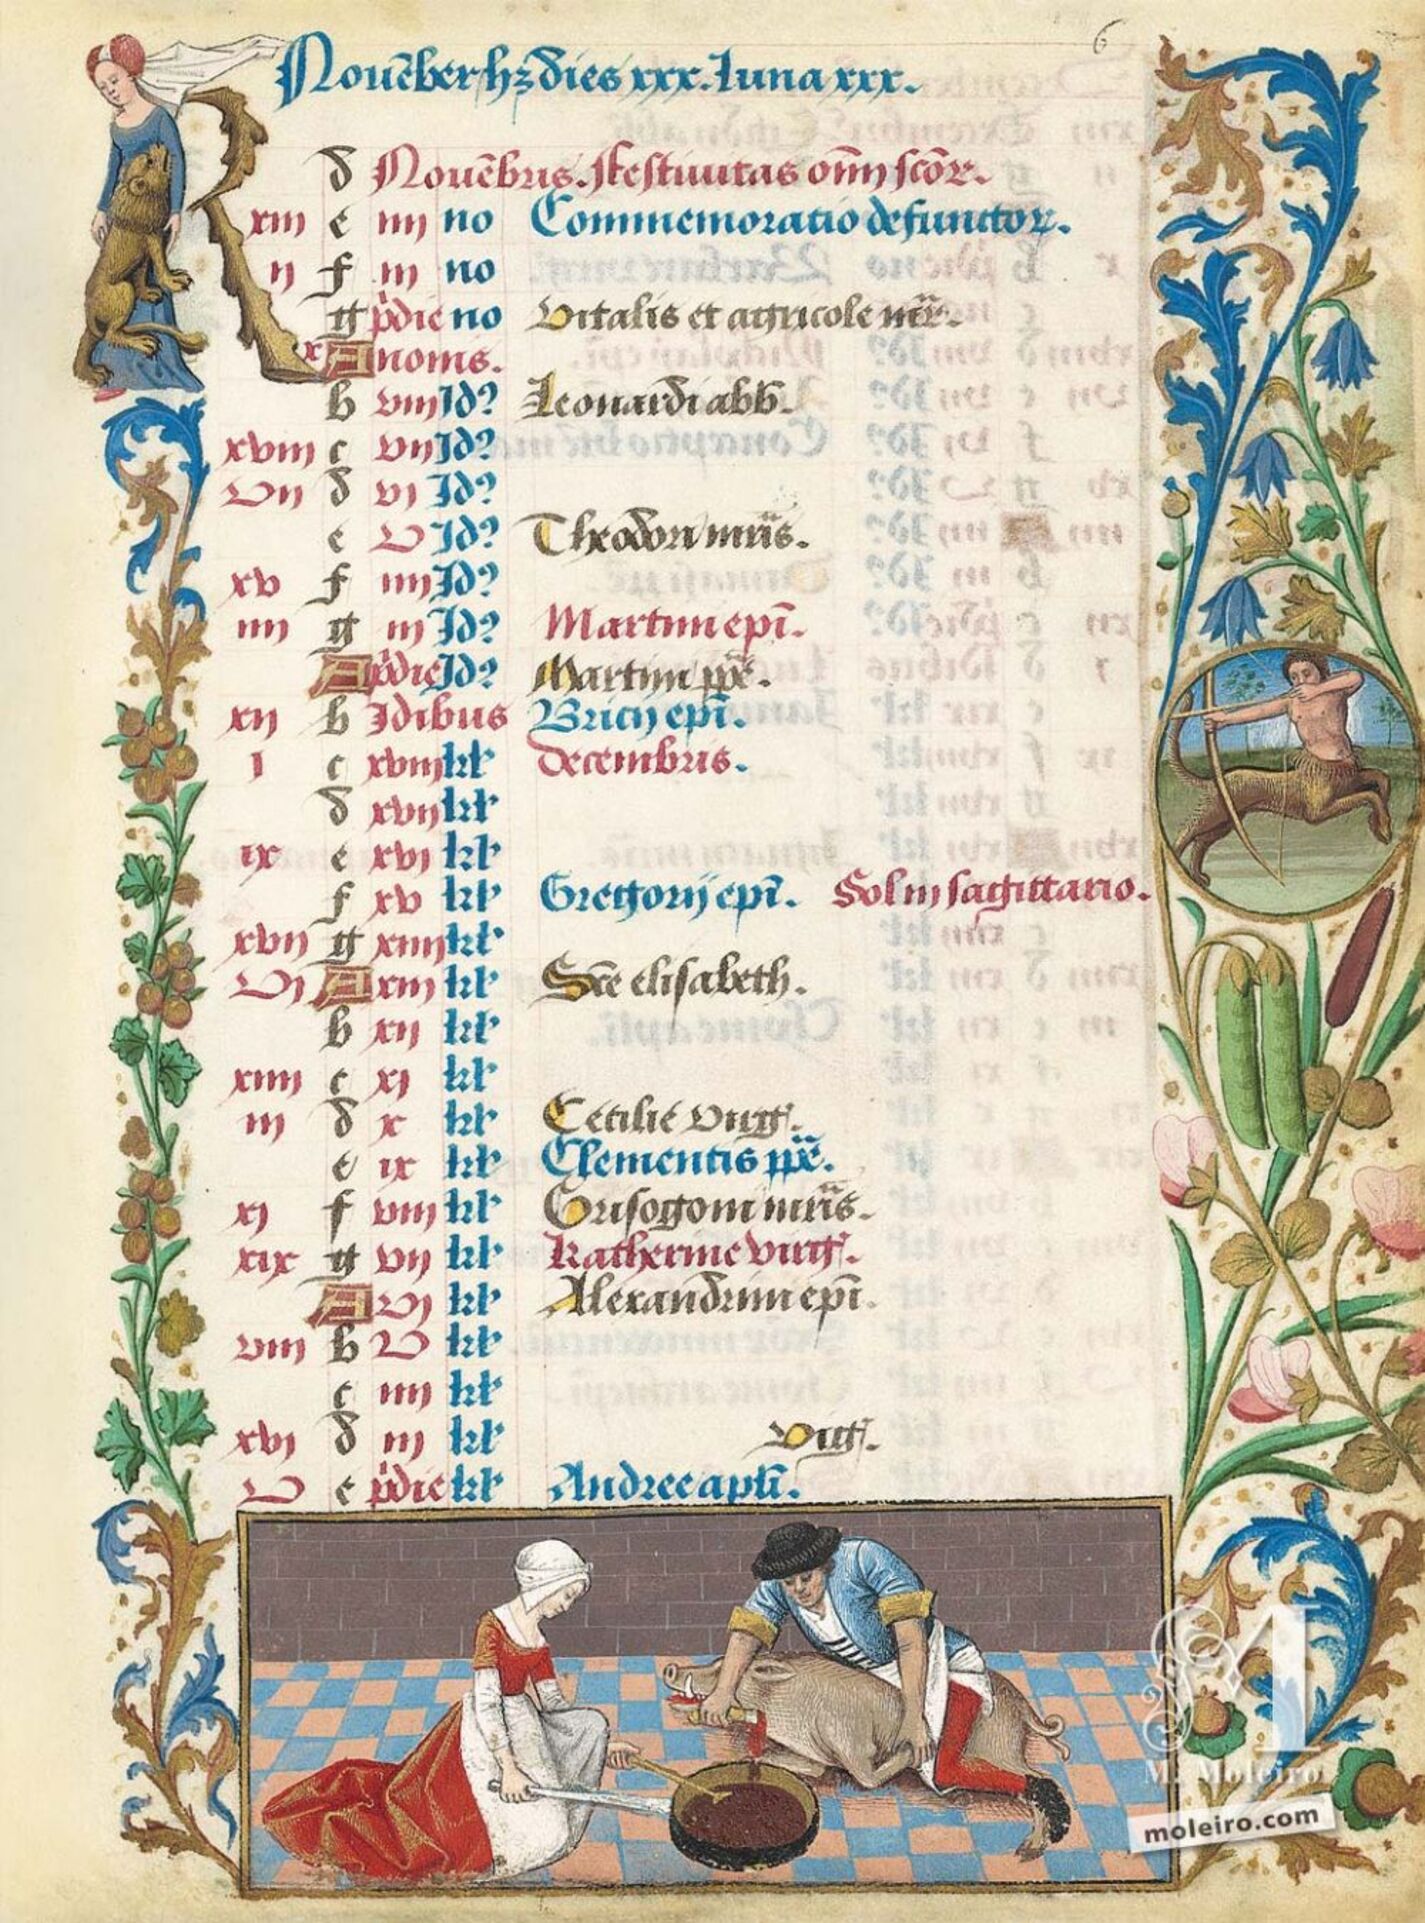 6
Nouēber hȝ dies xxx. Luna xxx.
d Nouēbris. Festiuitas om̄ sc̄oꝝ.
xiii e iiii no Commemoratio defunctoꝝ.
ii f iii no
g p̄die no Vitalis et agricole mr̄.
x A nonis.
b viii Id? Leonardi abb̄.
xviii c vii Id?
vii d vi Id?
e v Id? Theodori mr̄is.
xv f iiii Id?
iiii g iii Id? Martini ep̄i.
A p̄die Id? Martini pp̄e.
xii b Idibus Bricij ep̄i.
i c xviii kl' decembris.
d xvii kl'
ix e xvi kl'
f xv kl' Gregorij ep̄i. Sol in sagittario.
xvii g xiiii kl'
vi A xiii kl' Sc̄e elisabeth.
b xii kl'
xiiii c xi kl'
iii d x kl' Cecilie virḡ.
e ix kl' Clementis pp̄e.
xi f viii kl' Grisogoni mr̄is.
xix g vii kl' Katherine virḡ.
A vi kl' Alexandrini ep̄i.
viii b v kl'
c iiii kl'
xvi d iii kl' Viḡ.
v e p̄die kl' Andree apl̄i.
M. Moleiro
moleiro.com